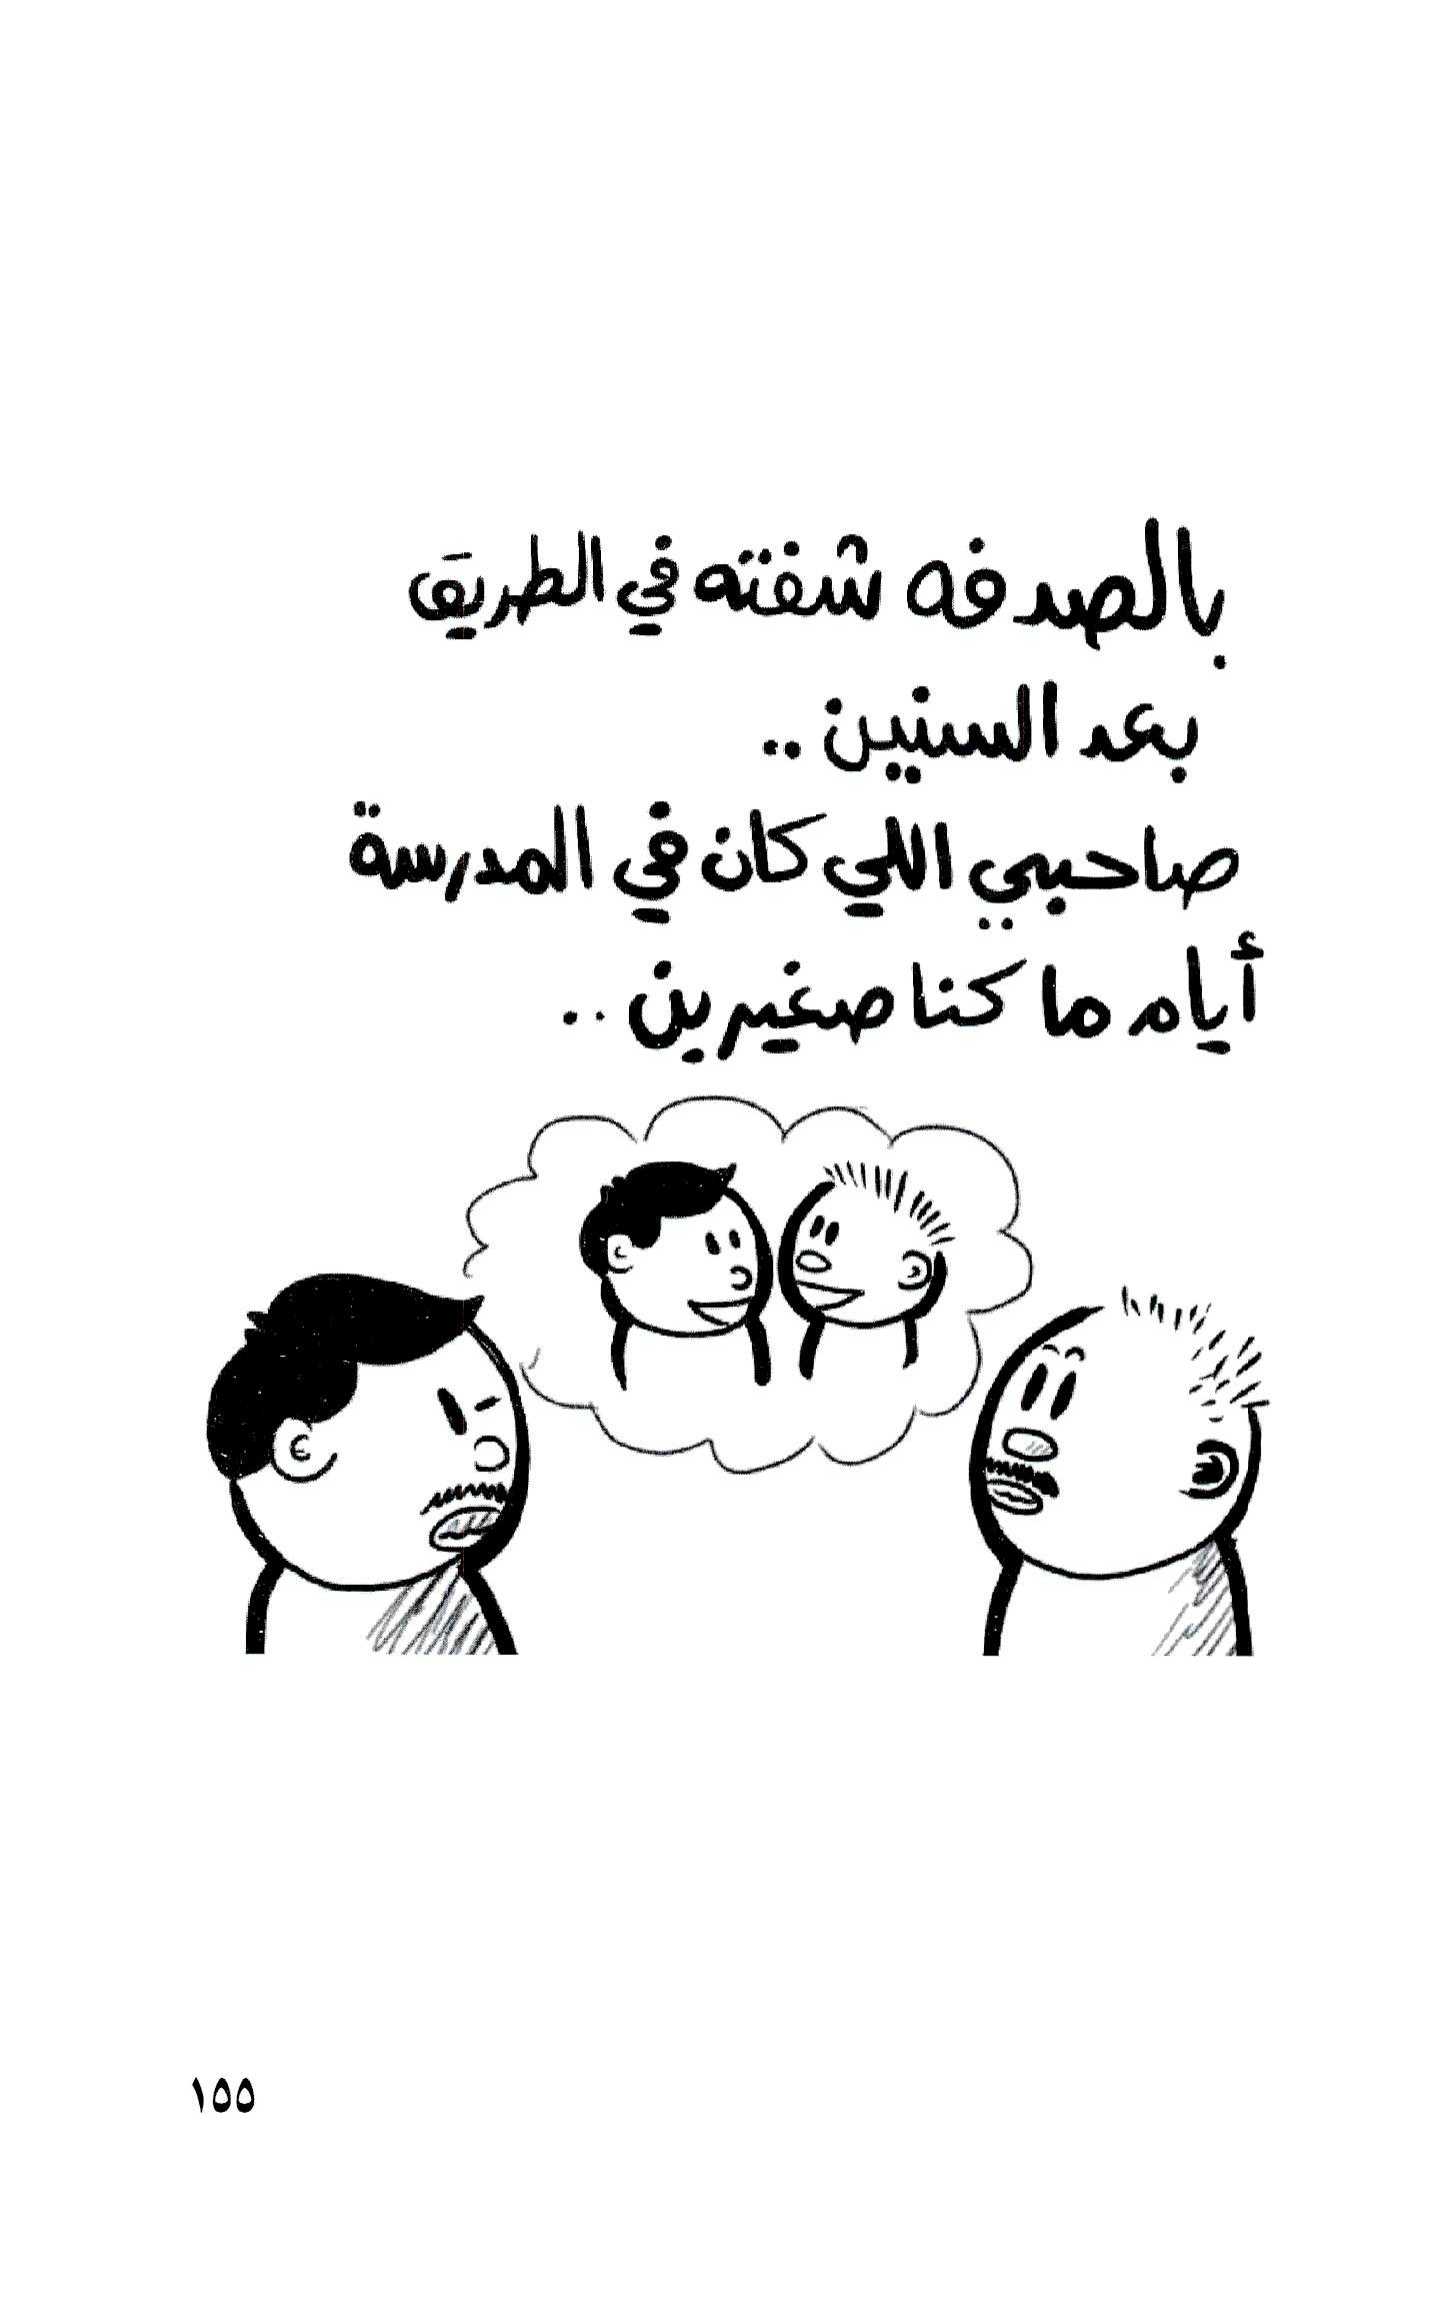 بالصدفه شفته في الطريق
بعد السنين ..
صاحبي اللي كان في المدرسة
أيام ما كنا صغيرين ..
١٥٥